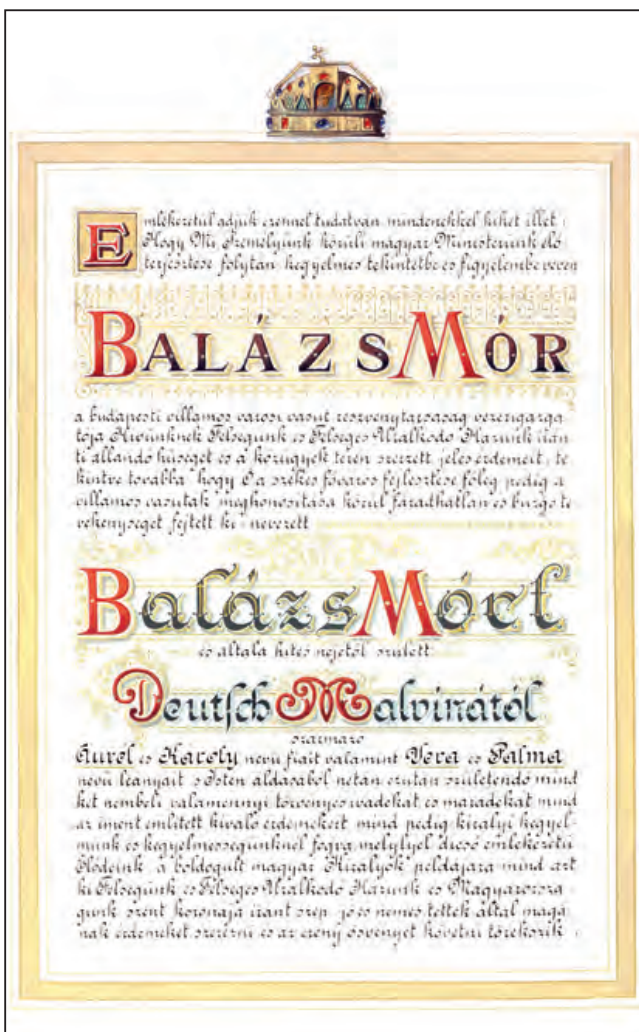 Emlékezetül adjuk ezennel tudatván mindenekkel kiket illet:
Hogy Mi Személyünk körüli magyar Ministerünk elő
terjesztése folytán kegyelmes tekintetbe és figyelembe vévén
BALÁZS MÓR
a budapesti villamos városi vasút részvénytársaság vezérigazga
tója Hivünknek Felségünk és Felséges Uralkodó Házunk irán
ti állandó hűségét és a közügyek terén szerzett jeles érdemeit, te
kintve továbbá hogy Ő a székes főváros fejlesztése főleg pedig a
villamos vasutak meghonosítása körül fáradhatlan és buzgó te
vékenységet fejtett ki - nevezett
Balázs Mórt
és általa hites nejétől született
Deutsch Malvinától
származó
Aurél és Károly nevű fiait valamint Vera és Palma
nevű leányait s Isten áldásából netán ezután születendő mind
két nembeli valamennyi törvényes ivadékát és maradékát mind
az imént említett kiváló érdemeiért mind pedig királyi kegyel-
münk és kegyelmességünknél fogva melylyel dicső emlékezetű
Elődeink, a boldogult magyar Királyok példájára mind azt
ki Felségünk és Felséges Uralkodó Házunk és Magyarorszá
gunk szent koronája iránt szép, jó és nemes tettek által magá
nak érdemeket szerezni és az erény ösvényét követni törekszik